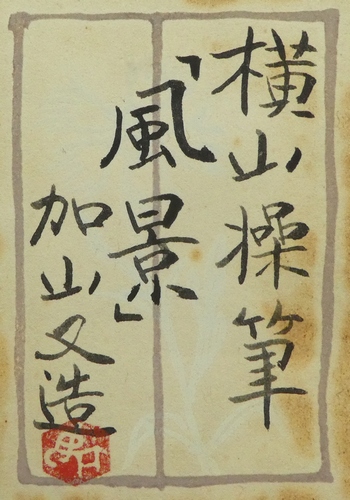 横山操筆
「風景」
加山又造